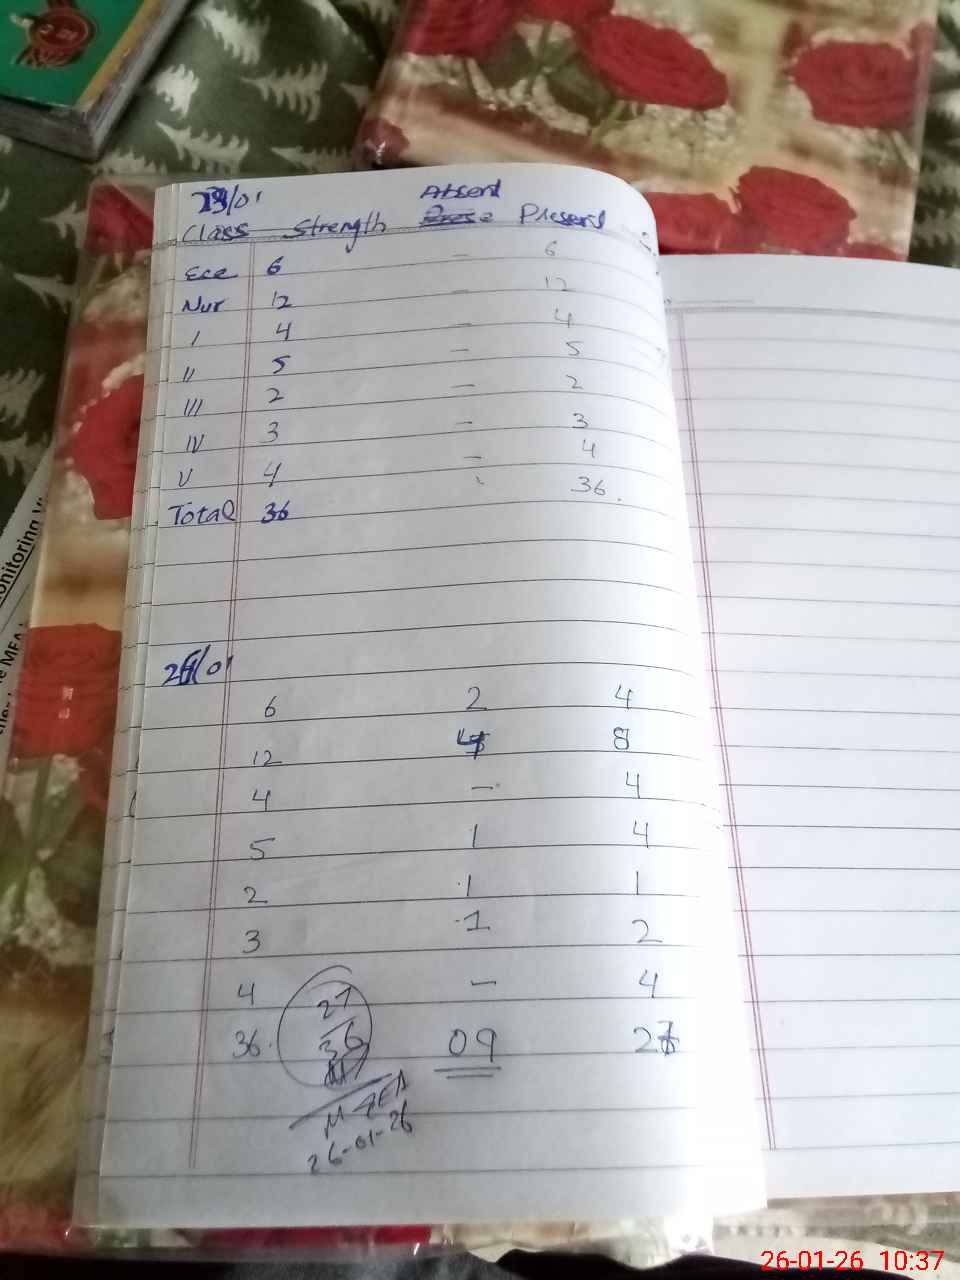 /01
Absent
Class Strength Present
Ece 6 — 6
Nur 12 — 12
I 4 — 4
II 5 — 5
III 2 — 2
IV 3 — 3
V 4 — 4
Total 36 36.
26/01
6 2 4
12 4 8
4 — 4
5 1 4
2 1 1
3 1 2
4 — 4
36. 27/36 09 27
MEA
26-01-26
onitoring
MEA
26-01-26 10:37